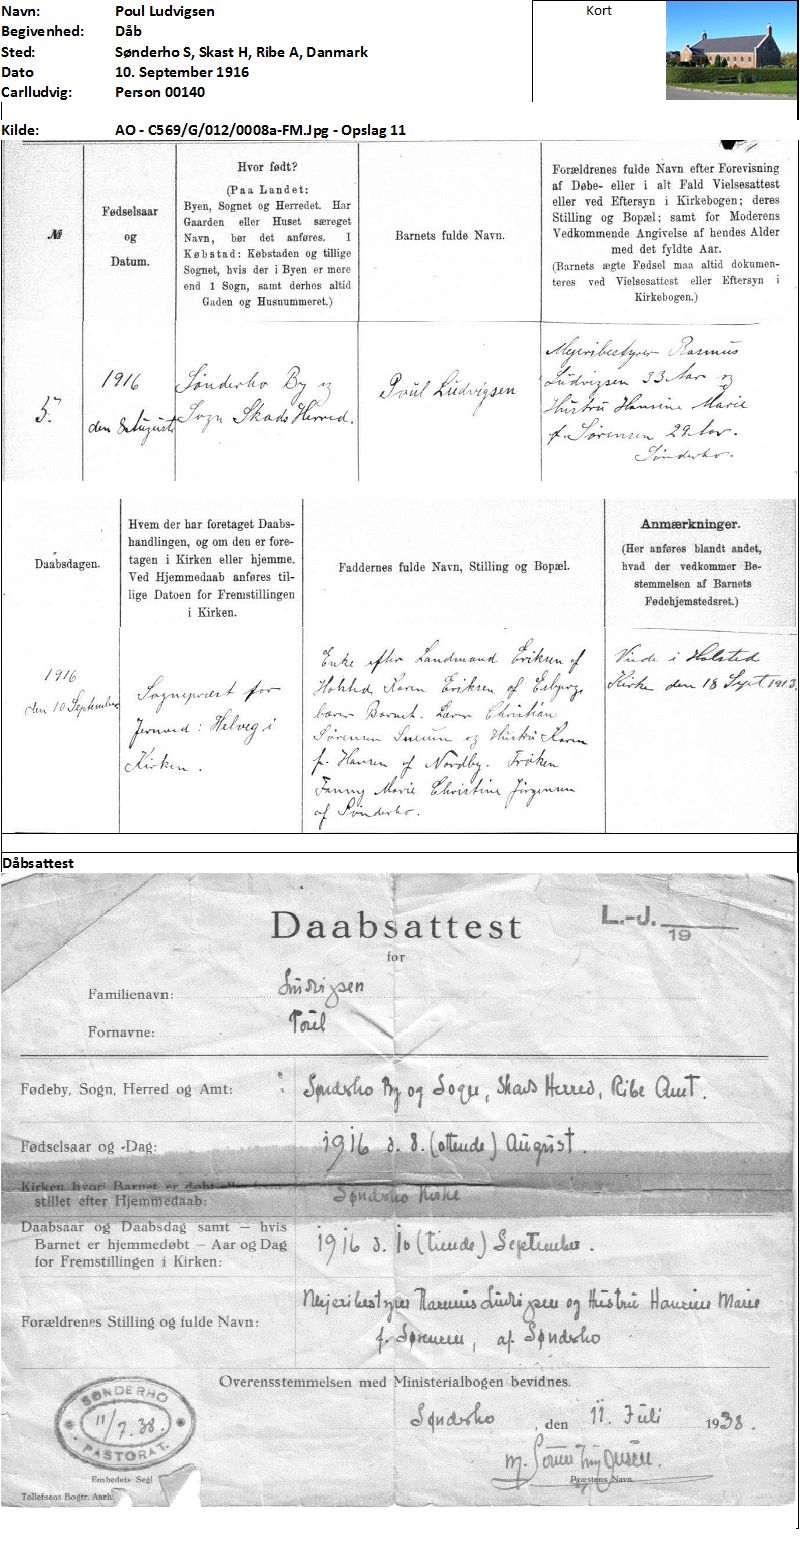 Navn: Poul Ludvigsen
Begivenhed: Dåb
Sted: Sønderho S, Skast H, Ribe A, Danmark
Dato 10. September 1916
Carlludvig: Person 00140
Kort
Kilde: AO - C569/G/012/0008a-FM.Jpg - Opslag 11
№
Fødselsaar
og
Datum.
Hvor født?
(Paa Landet:
Byen, Sognet og Herredet. Har
Gaarden eller Huset særeget
Navn, bør det anføres. I
Købstad: Købstaden og tillige
Sognet, hvis der i Byen er mere
end 1 Sogn, samt derhos altid
Gaden og Husnummeret.)
Barnets fulde Navn.
Forældrenes fulde Navn efter Forevisning
af Døbe- eller i alt Fald Vielsesattest
eller ved Eftersyn i Kirkebogen; deres
Stilling og Bopæl; samt for Moderens
Vedkommende Angivelse af hendes Alder
med det fyldte Aar.
(Barnets ægte Fødsel maa altid dokumen-
teres ved Vielsesattest eller Eftersyn i
Kirkebogen.)
5.
1916
den 8 August
Sønderho By og
Sogn Skads Herred.
Poul Ludvigsen
Mejeribestyrer Rasmus
Ludvigsen 33 Aar og
Hustru Hansine Marie
f. Sørensen 29 Aar.
Sønderho.
Daabsdagen.
Hvem der har foretaget Daabs-
handlingen, og om den er fore-
tagen i Kirken eller hjemme.
Ved Hjemmedaab anføres til-
lige Datoen for Fremstillingen
i Kirken.
Faddernes fulde Navn, Stilling og Bopæl.
Anmærkninger.
(Her anføres blandt andet,
hvad der vedkommer Be-
stemmelsen af Barnets
Fødehjemstedsret.)
1916
den 10 September
Sognepræst for
Jernved: Helveg i
Kirken.
Enke efter Landmand Eriksen af
Holsted Karen Eriksen af Esbjerg
bærer Barnet. Lærer Christian
Sørensen og Hustru Karen
f. Hansen af Nordby. Frøken
Fanny Marie Christine Jørgensen
af Sønderho.
Viede i Holsted
Kirke den 18 Sept 1913.
Dåbsattest
Daabsattest
L.-J.
19
for
Familienavn: Ludvigsen
Fornavne: Poul
Fødeby, Sogn, Herred og Amt: Sønderho By og Sogn, Skads Herred, Ribe Amt.
Fødselsaar og -Dag: 1916 d. 8. (ottende) August.
Kirken, hvori Barnet er døbt eller frem-
stillet efter Hjemmedaab: Sønderho Kirke
Daabsaar og Daabsdag samt — hvis
Barnet er hjemmedøbt — Aar og Dag
for Fremstillingen i Kirken: 1916 d. 10 (tiende) September.
Forældrenes Stilling og fulde Navn: Mejeribestyrer Rasmus Ludvigsen og Hustru Hansine Marie
f. Sørensen, af Sønderho
Overensstemmelsen med Ministerialbogen bevidnes.
SØNDERHO
11/7.38.
PASTORAT.
Sønderho, den 11. Juli 1938.
Embedets Segl
Præstens Navn
Tollefsens Bogtr. Aarh.